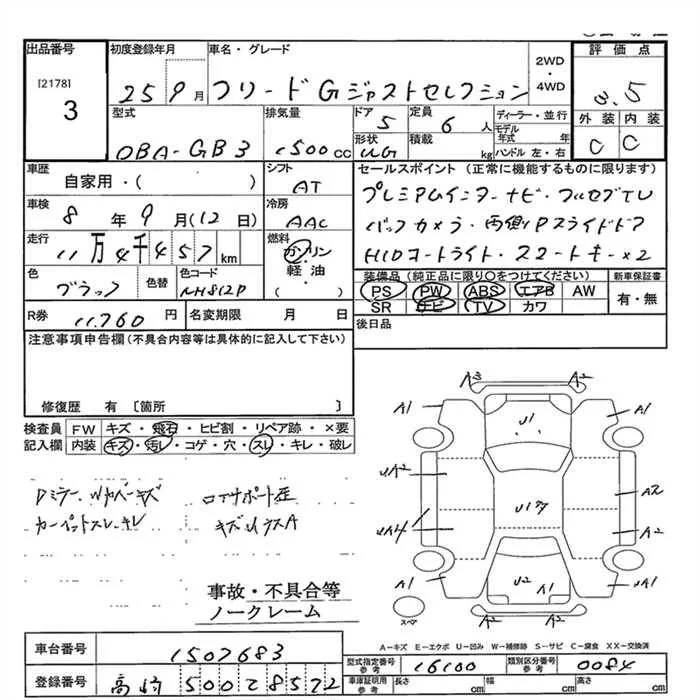 出品番号 初度登録年月 車名・グレード 2WD・4WD 評価点
[2178] 3 25 9月 フリード G ジャストセレクション 3.5
型式 排気量 ドア 5 定員 6人 ディーラー・並行 外装 内装
DBA-GB3 1500cc 形状 WG 積載 kg モデル年式 年 ハンドル 左・右 C C
車歴 シフト セールスポイント (正常に機能するものに限ります)
自家用・( ) AT プレミアムインターナビ・フルセグTV
車検 8年 9月 (12日) 冷房 AAC バックカメラ・両側Pスライドドア
走行 11万4千457km 燃料 ガソリン・軽油・( ) HIDオートライト・スマートキー×2
色 ブラック 色替 色コード NH812P 装備品 (純正品に限り〇をつけてください) 新車保証書
PS PW ABS エアB AW 有・無
SR ナビ TV カワ
R券 11.760円 名変期限 月 日 後日品
注意事項申告欄 (不具合内容等は具体的に記入して下さい)
修復歴 有 〔箇所 〕
検査員記入欄 FW キズ・飛石・ヒビ割・リペア跡・×要
内装 キズ・汚レ・コゲ・穴・スレ・キレ・破レ
カーペットスレ・キレ
A3 A2
A1 U1 A1
A2
A2
A1 U2 A1
スペア
事故・不具合等
ノークレーム
A-キズ E-エクボ U-凹み W-補修跡 S-サビ C-腐食 XX-交換済
車台番号 1507683 型式指定番号 参考 16100 類別区分番号 参考 0084
登録番号 高崎 500 て 8522 車庫証明用 参考 長さ cm 幅 cm 高さ cm